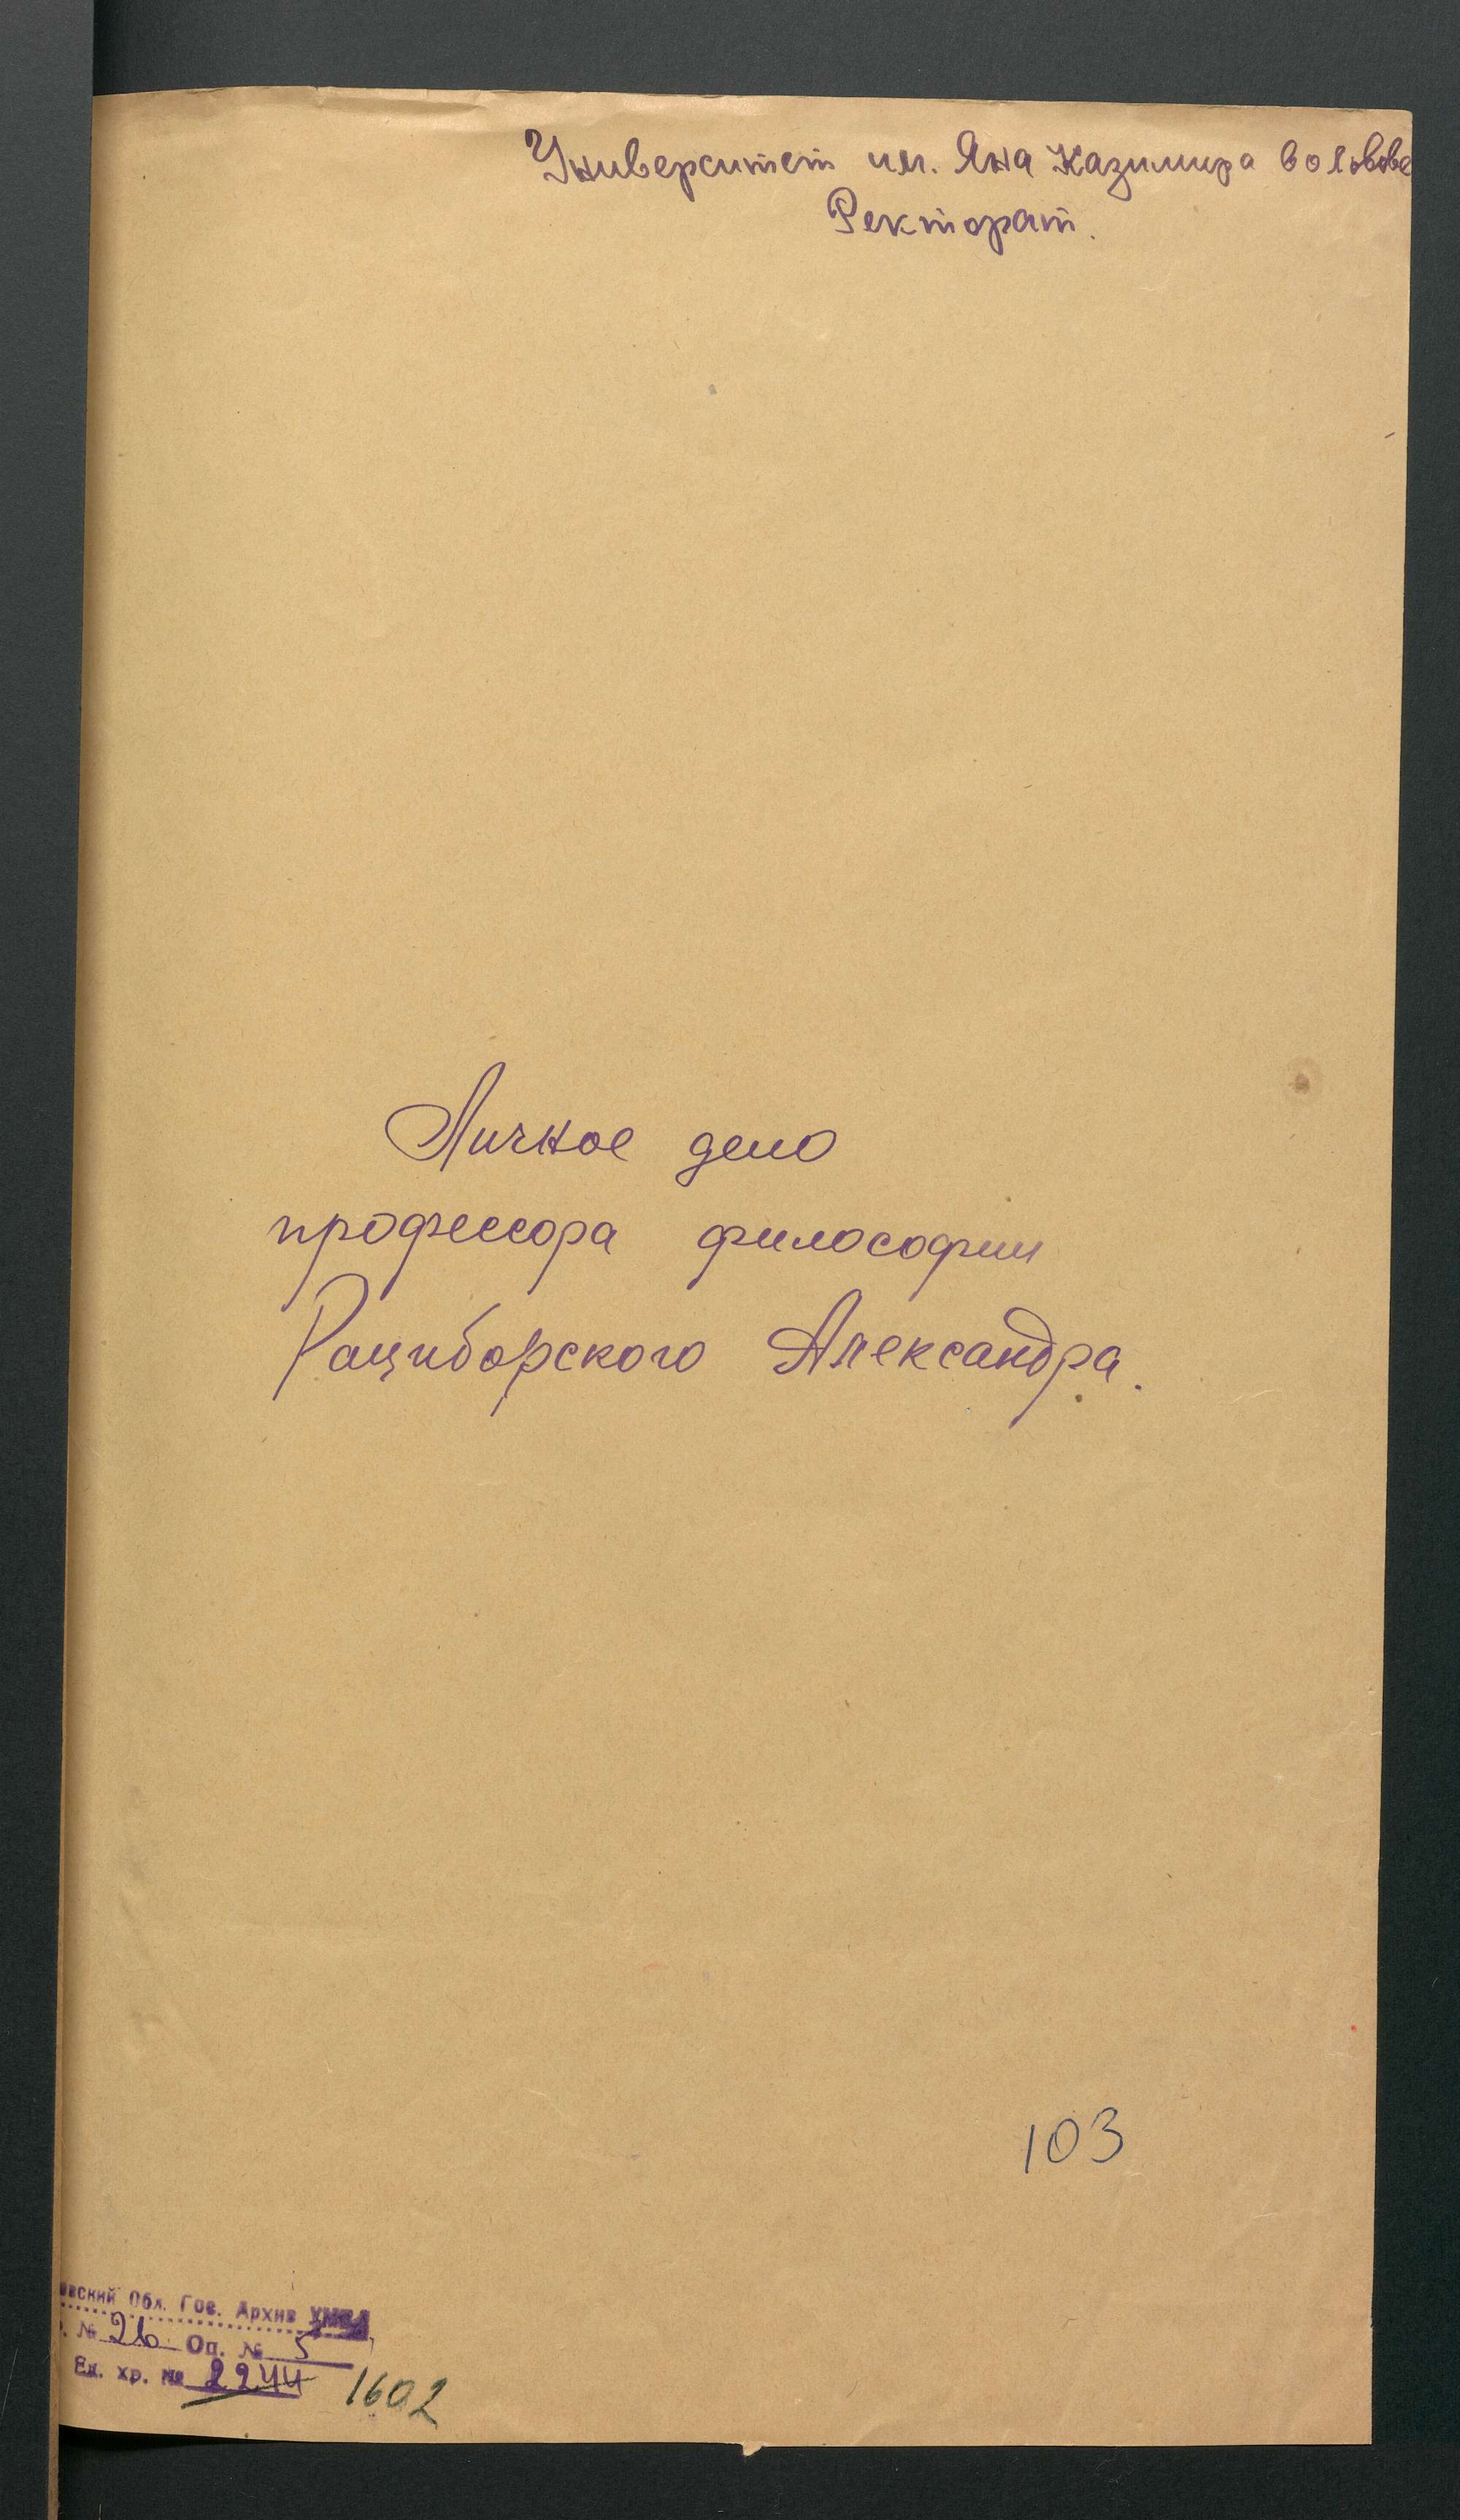 Университет им. Яна Казимира во Львове
Ректорат.
Личное дело
профессора философии
Рациборского Александра.
103
вский Обл. Гос. Архив
. № 26 Оп. № 5
Ед. хр. № 2244 1602